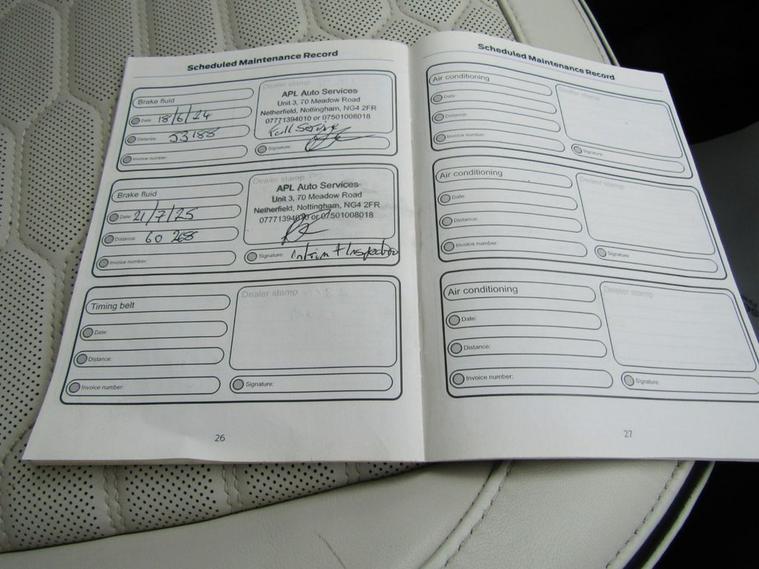 Scheduled Maintenance Record
Brake fluid
Date: 18/6/24
Distance: 53188
Invoice number:
Dealer stamp
APL Auto Services
Unit 3, 70 Meadow Road
Netherfield, Nottingham, NG4 2FR
07771394010 or 07501008018
Full Service
Signature:
Brake fluid
Date: 21/7/25
Distance: 60 268
Invoice number:
Dealer stamp
APL Auto Services
Unit 3, 70 Meadow Road
Netherfield, Nottingham, NG4 2FR
07771394010 or 07501008018
Signature: Interim + Inspection
Timing belt
Date:
Distance:
Invoice number:
Dealer stamp
Signature:
26
Scheduled Maintenance Record
Air conditioning
Date:
Distance:
Invoice number:
Dealer stamp
Signature:
Air conditioning
Date:
Distance:
Invoice number:
Dealer stamp
Signature:
Air conditioning
Date:
Distance:
Invoice number:
Dealer stamp
Signature:
27